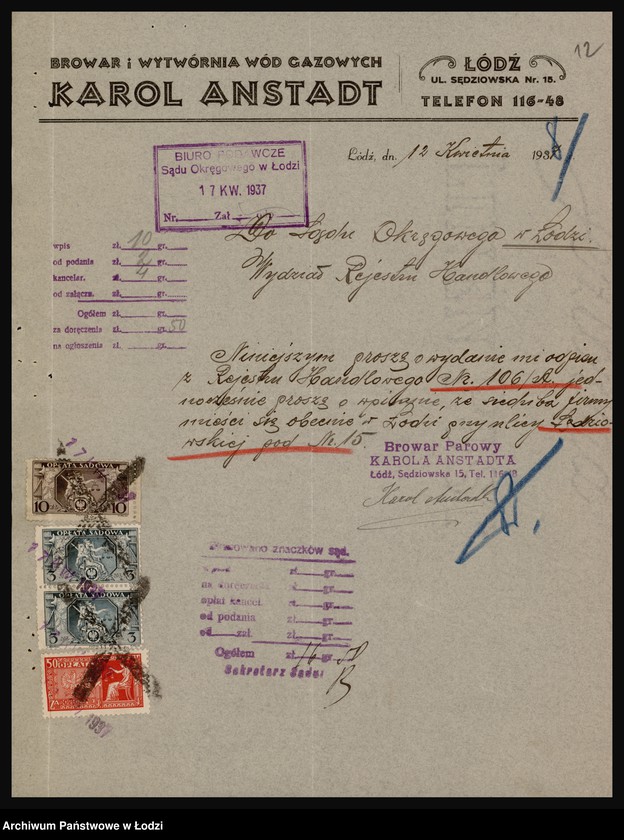 12
BROWAR i WYTWÓRNIA WÓD GAZOWYCH
KAROL ANSTADT
ŁÓDŹ
UL. SĘDZIOWSKA Nr. 15.
TELEFON 116-48
Łódź, dn. 12 Kwietnia 193
BIURO PODAWCZE
Sądu Okręgowego w Łodzi
17 KW. 1937
Nr. Zał
Do Sądu Okręgowego w Łodzi.
Wydział Rejestru Handlowego
wpis zł. 10 gr.
od podania zł. 2 gr.
kancelar. zł. 4 gr.
od załącz. zł. gr.
Ogółem zł. gr.
za doręczenie zł. gr. 50
na ogłoszenie zł. gr.
Niniejszym proszę o wydanie mi odpisu
z Rejestru Handlowego Nr. 106/A. jed-
nocześnie proszę o wpisanie, że siedziba firmy
mieści się obecnie w Łodzi przy ulicy Sędzio-
wskiej pod Nr. 15.
Browar Parowy
KAROLA ANSTADTA
Łódź, Sędziowska 15, Tel. 116-48
Karol Anstadt
OPŁATA SĄDOWA
10 10
3 3
3 3
50
1937
Skasowano znaczków sąd.
wpis zł. gr.
na doręczenie zł. gr.
opłat kancel. zł. gr.
od podania zł. gr.
od zał. zł. gr.
Ogółem zł. 16 gr. 50
Sekretarz Sądu
Archiwum Państwowe w Łodzi